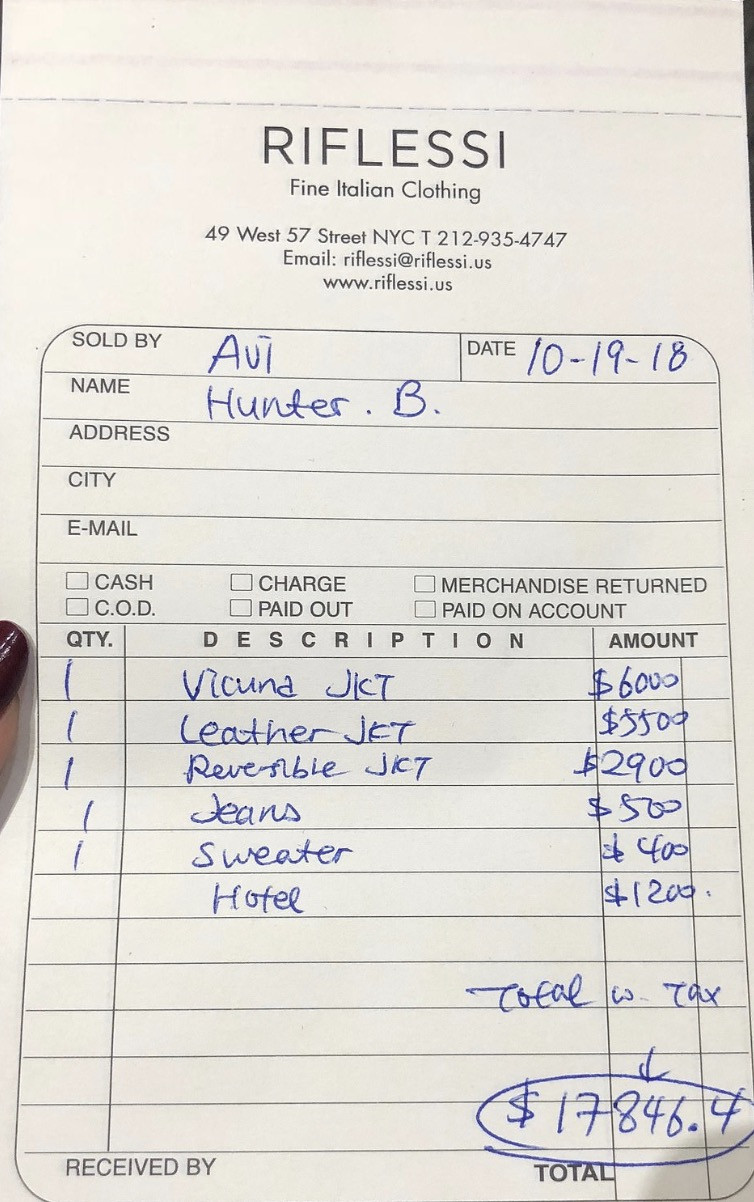 RIFLESSI
Fine Italian Clothing
49 West 57 Street NYC T 212-935-4747
Email: riflessi@riflessi.us
www.riflessi.us
SOLD BY Avi DATE 10-19-18
NAME Hunter. B.
ADDRESS
CITY
E-MAIL
CASH CHARGE MERCHANDISE RETURNED
C.O.D. PAID OUT PAID ON ACCOUNT
QTY. DESCRIPTION AMOUNT
1 Vicuna JKT $6000
1 Leather JKT $5500
1 Reversible JKT $2900
1 Jeans $500
1 Sweater $400
Hotel $1200.
Total w. Tax
$17846.4
RECEIVED BY TOTAL